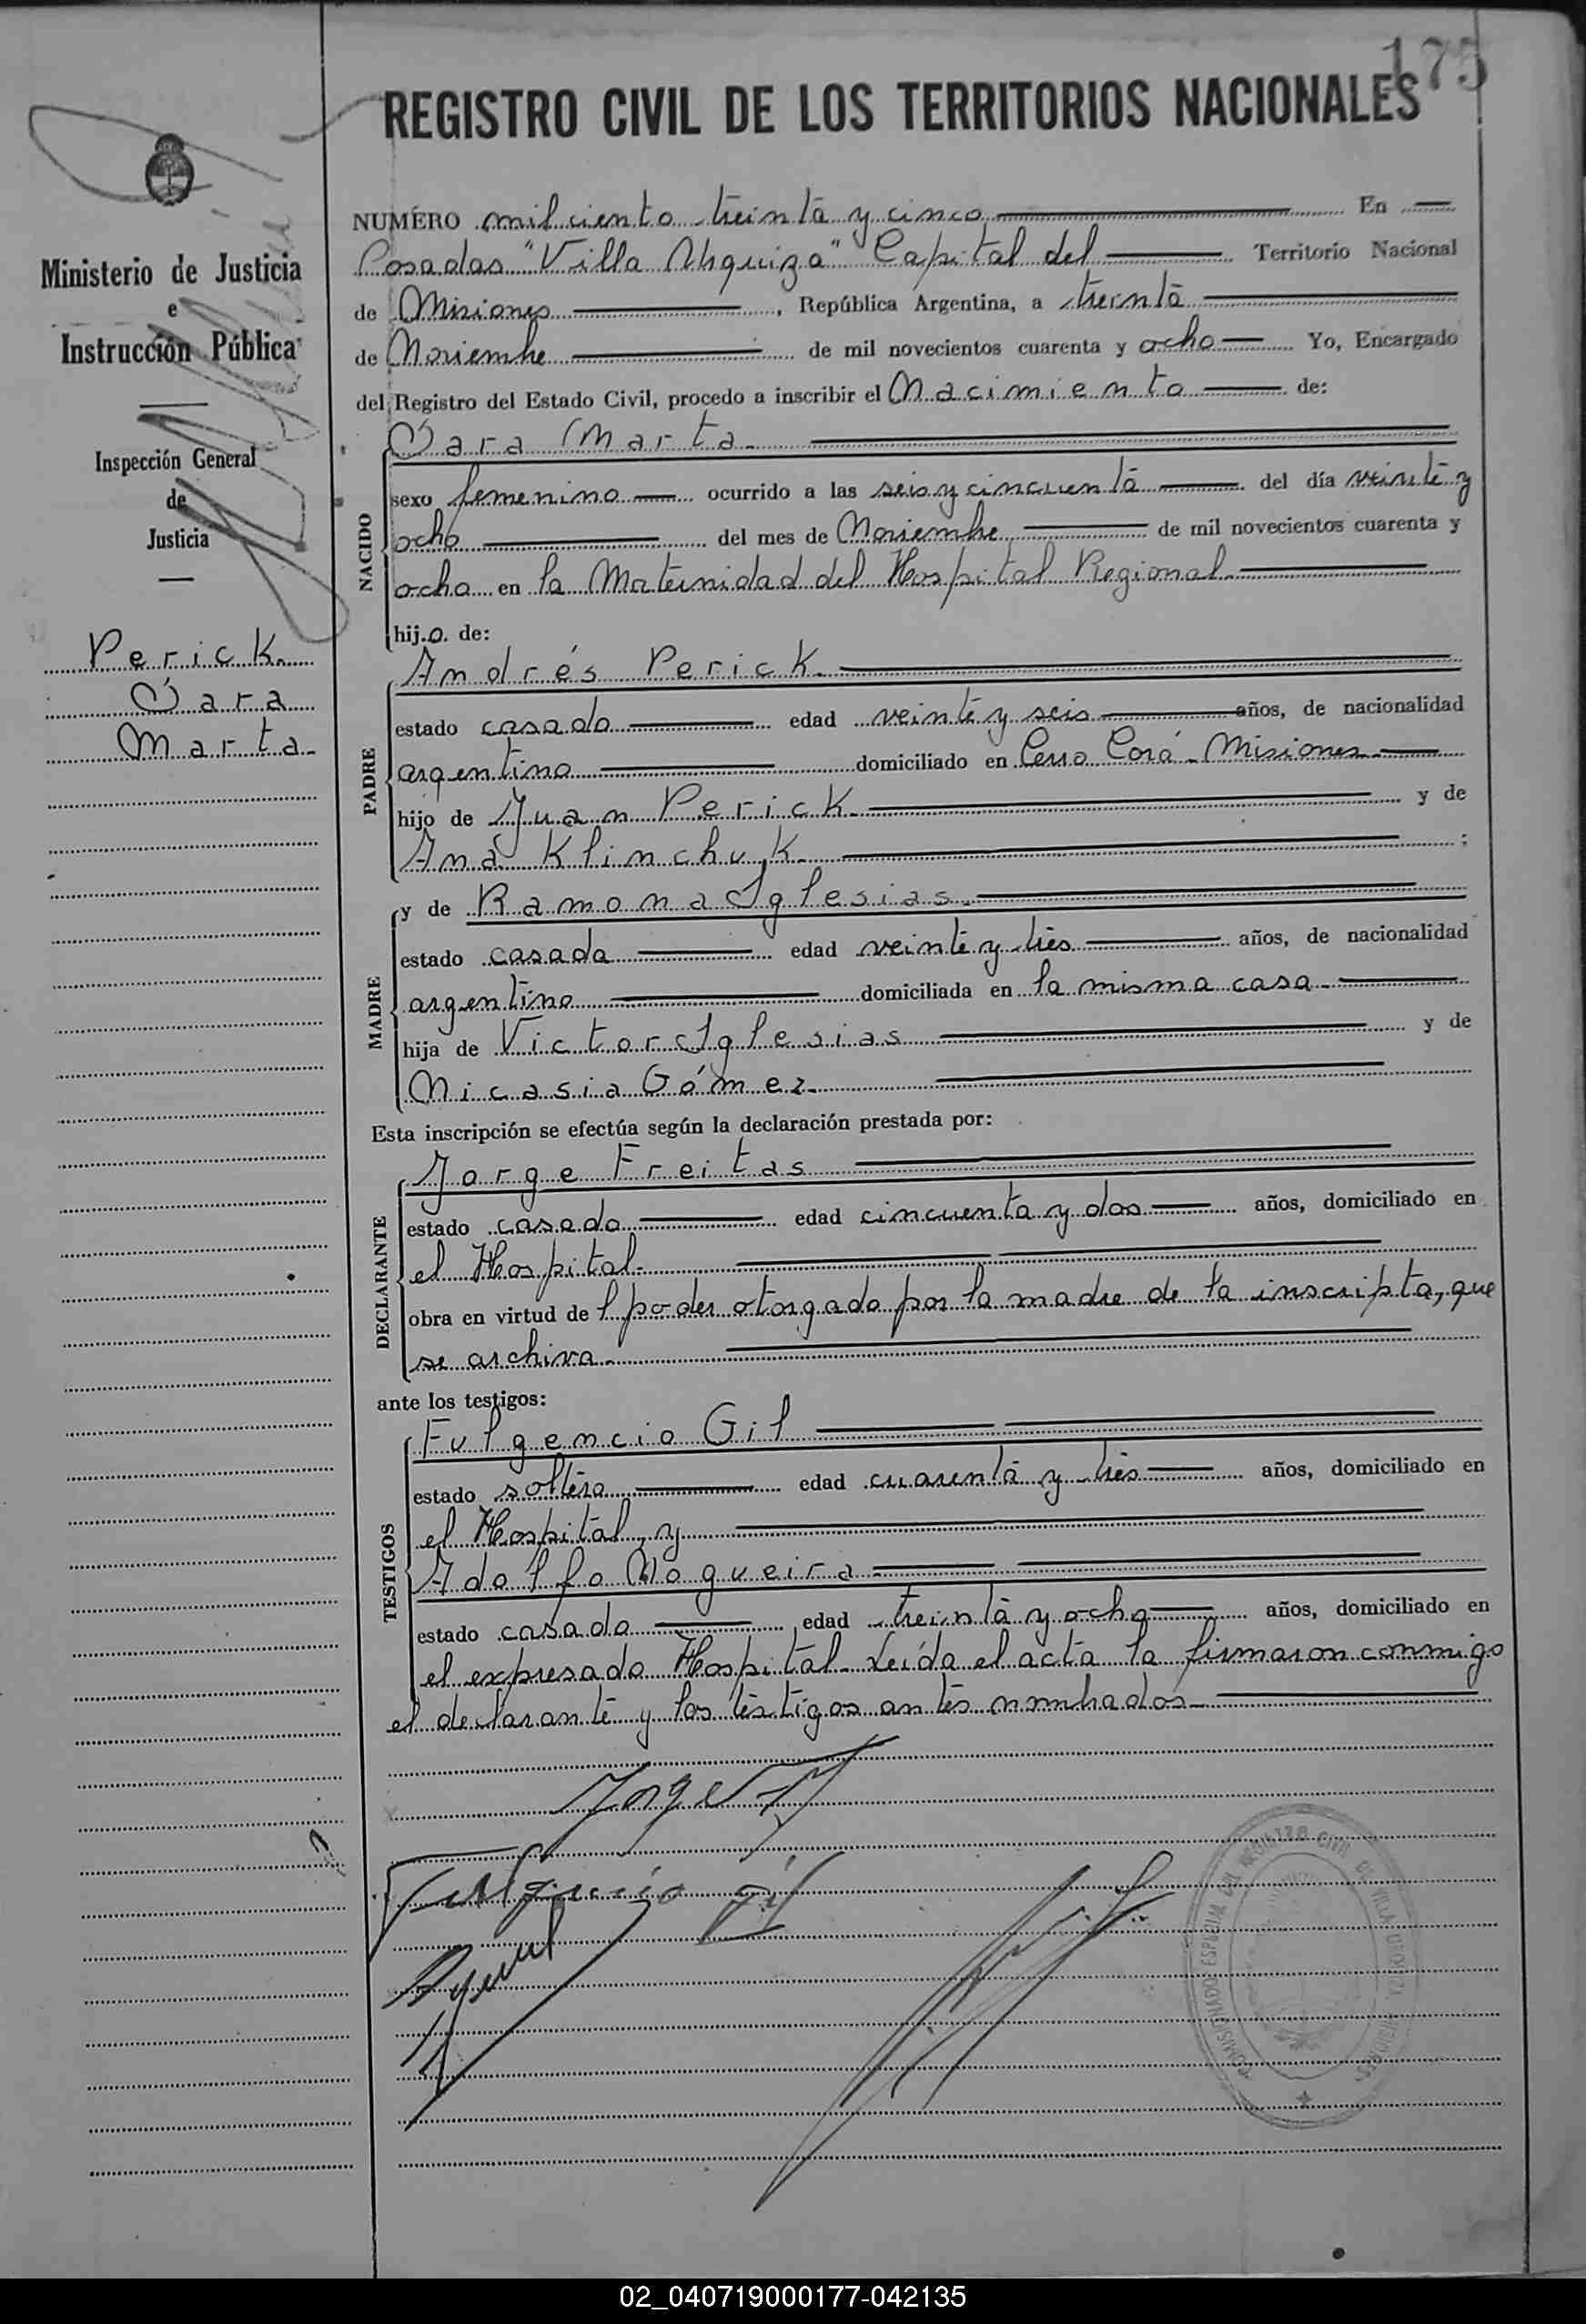 175
REGISTRO CIVIL DE LOS TERRITORIOS NACIONALES
Ministerio de Justicia
e
Instrucción Pública
Inspección General
de
Justicia
Perick.
Sara
Marta.
NUMERO mil ciento treinta y cinco En
Posadas "Villa Urquiza" Capital del Territorio Nacional
de Misiones, República Argentina, a treinta
de Noviembre de mil novecientos cuarenta y ocho Yo, Encargado
del Registro del Estado Civil, procedo a inscribir el Nacimiento de:
NACIDO
Sara Marta.
sexo femenino ocurrido a las seis y cincuenta del día veinte y
ocho del mes de Noviembre de mil novecientos cuarenta y
ocho en la Maternidad del Hospital Regional.
hij.o. de:
PADRE
Andrés Perick.
estado casado edad veinte y seis años, de nacionalidad
argentino domiciliado en Cerro Corá. Misiones.
hijo de Juan Perick. y de
Ana Klinchuk. ;
MADRE
y de Ramona Iglesias.
estado casada edad veinte y tres años, de nacionalidad
argentino domiciliada en la misma casa.
hija de Victor Iglesias y de
Nicasia Gómez.
Esta inscripción se efectúa según la declaración prestada por:
DECLARANTE
Jorge Freitas
estado casado edad cincuenta y dos años, domiciliado en
el Hospital.
obra en virtud de l poder otorgado por la madre de la inscripta, que
se archiva.
ante los testigos:
TESTIGOS
Fulgencio Gil
estado soltero edad cuarenta y tres años, domiciliado en
el Hospital, y
Adolfo Nogueira
estado casado, edad treinta y ocho años, domiciliado en
el expresado Hospital. Leída el acta la firmaron conmigo
el declarante y los testigos antes nombrados.
Jorge
Fulgencio Gil
REGISTRO CIVIL DE VILLA URQUIZA
02_040719000177-042135